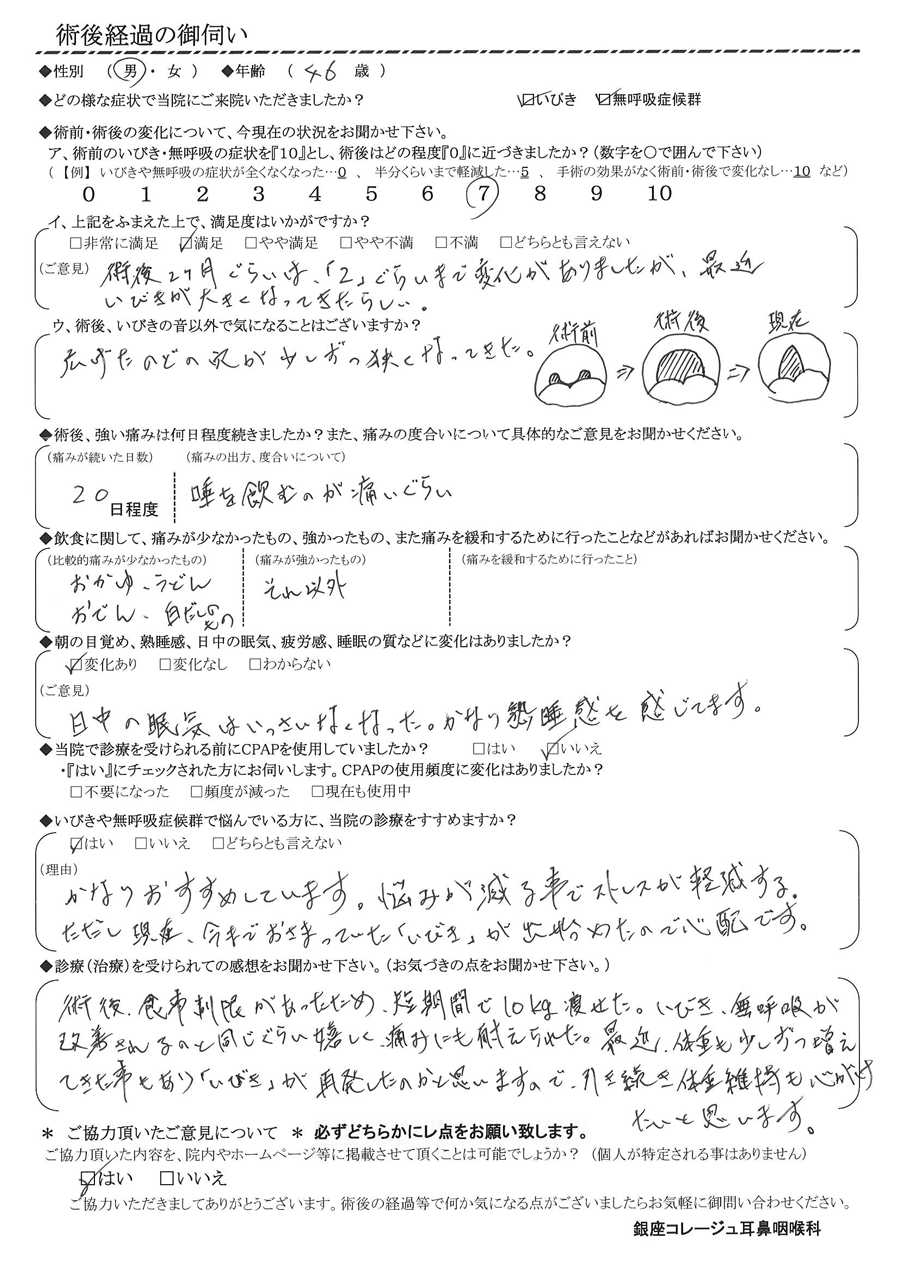 術後経過の御伺い
◆性別 (男・女) ◆年齢 (46歳)
◆どの様な症状で当院にご来院いただきましたか? ☑いびき ☑無呼吸症候群
◆術前・術後の変化について、今現在の状況をお聞かせ下さい。
ア、術前のいびき・無呼吸の症状を『10』とし、術後はどの程度『0』に近づきましたか?(数字を〇で囲んで下さい)
(【例】いびきや無呼吸の症状が全くなくなった…0 、 半分くらいまで軽減した…5 、 手術の効果がなく術前・術後で変化なし…10 など)
0 1 2 3 4 5 6 7 8 9 10
イ、上記をふまえた上で、満足度はいかがですか?
□非常に満足 ☑満足 □やや満足 □やや不満 □不満 □どちらとも言えない
(ご意見) 術後2ヶ月ぐらいは、「2」ぐらいまで変化がありましたが、最近
いびきが大きくなってきたらしい。
ウ、術後、いびきの音以外で気になることはございますか?
広げたのどの穴が少しずつ狭くなってきた。
術前 ⇒ 術後 ⇒ 現在
◆術後、強い痛みは何日程度続きましたか?また、痛みの度合いについて具体的なご意見をお聞かせください。
(痛みが続いた日数) (痛みの出方、度合いについて)
20日程度 唾を飲むのが痛いぐらい
◆飲食に関して、痛みが少なかったもの、強かったもの、また痛みを緩和するために行ったことなどがあればお聞かせください。
(比較的痛みが少なかったもの) (痛みが強かったもの) (痛みを緩和するために行ったこと)
おかゆ、うどん それ以外
おでん、白だしのもの
◆朝の目覚め、熟睡感、日中の眠気、疲労感、睡眠の質などに変化はありましたか?
☑変化あり □変化なし □わからない
(ご意見)
日中の眠気はいっさいなくなった。かなり熟睡感を感じてます。
◆当院で診療を受けられる前にCPAPを使用していましたか? □はい ☑いいえ
・『はい』にチェックされた方にお伺いします。CPAPの使用頻度に変化はありましたか?
□不要になった □頻度が減った □現在も使用中
◆いびきや無呼吸症候群で悩んでいる方に、当院の診療をすすめますか?
☑はい □いいえ □どちらとも言えない
(理由)
かなりおすすめしています。悩みが減る事でストレスが軽減する。
ただし現在、今までおさまっていた「いびき」が出始めたので心配です。
◆診療(治療)を受けられての感想をお聞かせ下さい。(お気づきの点をお聞かせ下さい。)
術後、食事制限があったため、短期間で10kg痩せた。いびき、無呼吸が
改善されるのと同じぐらい嬉しく、痛みにも耐えられた。最近、体重も少しずつ増え
てきた事もあり「いびき」が再発したのかと思いますので、引き続き体重維持も心がけ
たいと思います。
* ご協力頂いたご意見について * 必ずどちらかにレ点をお願い致します。
ご協力頂いた内容を、院内やホームページ等に掲載させて頂くことは可能でしょうか? (個人が特定される事はありません)
☑はい □いいえ
ご協力いただきましてありがとうございます。術後の経過等で何か気になる点がございましたらお気軽に御問い合わせください。
銀座コレージュ耳鼻咽喉科